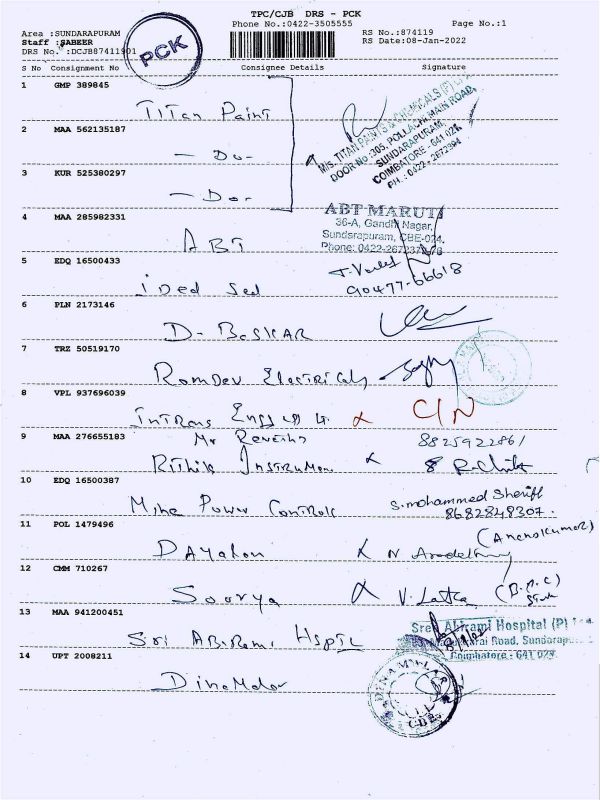 TPC/CJB DRS - PCK
Phone No.:0422-3505555
Page No.:1
Area :SUNDARAPURAM
Staff :SABEER
DRS No. :DCJB87411901
PCK
RS No.:874119
RS Date:08-Jan-2022
S No Consignment No Consignee Details Signature
1 GMP 389845
Titan Paint
M/s. TITAN PAINTS & CHEMICALS (P) LTD
DOOR No :305, POLLACHI MAIN ROAD,
SUNDARAPURAM,
COIMBATORE - 641 024
PH.: 0422 - 2672394
2 MAA 562135187
- Do -
3 KUR 525380297
- Do -
4 MAA 285982331
ABT
ABT MARUTI
36-A, Gandhi Nagar,
Sundarapuram, CBE-024.
Phone: 0422-2672377/78
5 EDQ 16500433
90477-66618
6 PLN 2173146
D- BaSKAR
7 TRZ 50519170
RamDev Electricals
8 VPL 937696039
C/N
9 MAA 276655183
Mr
8825922861
Rithik
10 EDQ 16500387
Power Controls
S.mohammed Sheriff
8682848307.
11 POL 1479496
Dayalan
(Anandkumar)
12 CMM 710267
Soorya
V. Latha
13 MAA 941200451
Sri ABiRami Hsptl
Sree Abirami Hospital (P)
Road, Sundarapu
Coimbatore - 641 024
14 UPT 2008211
DinaMalar
DINAMALAR
CBE